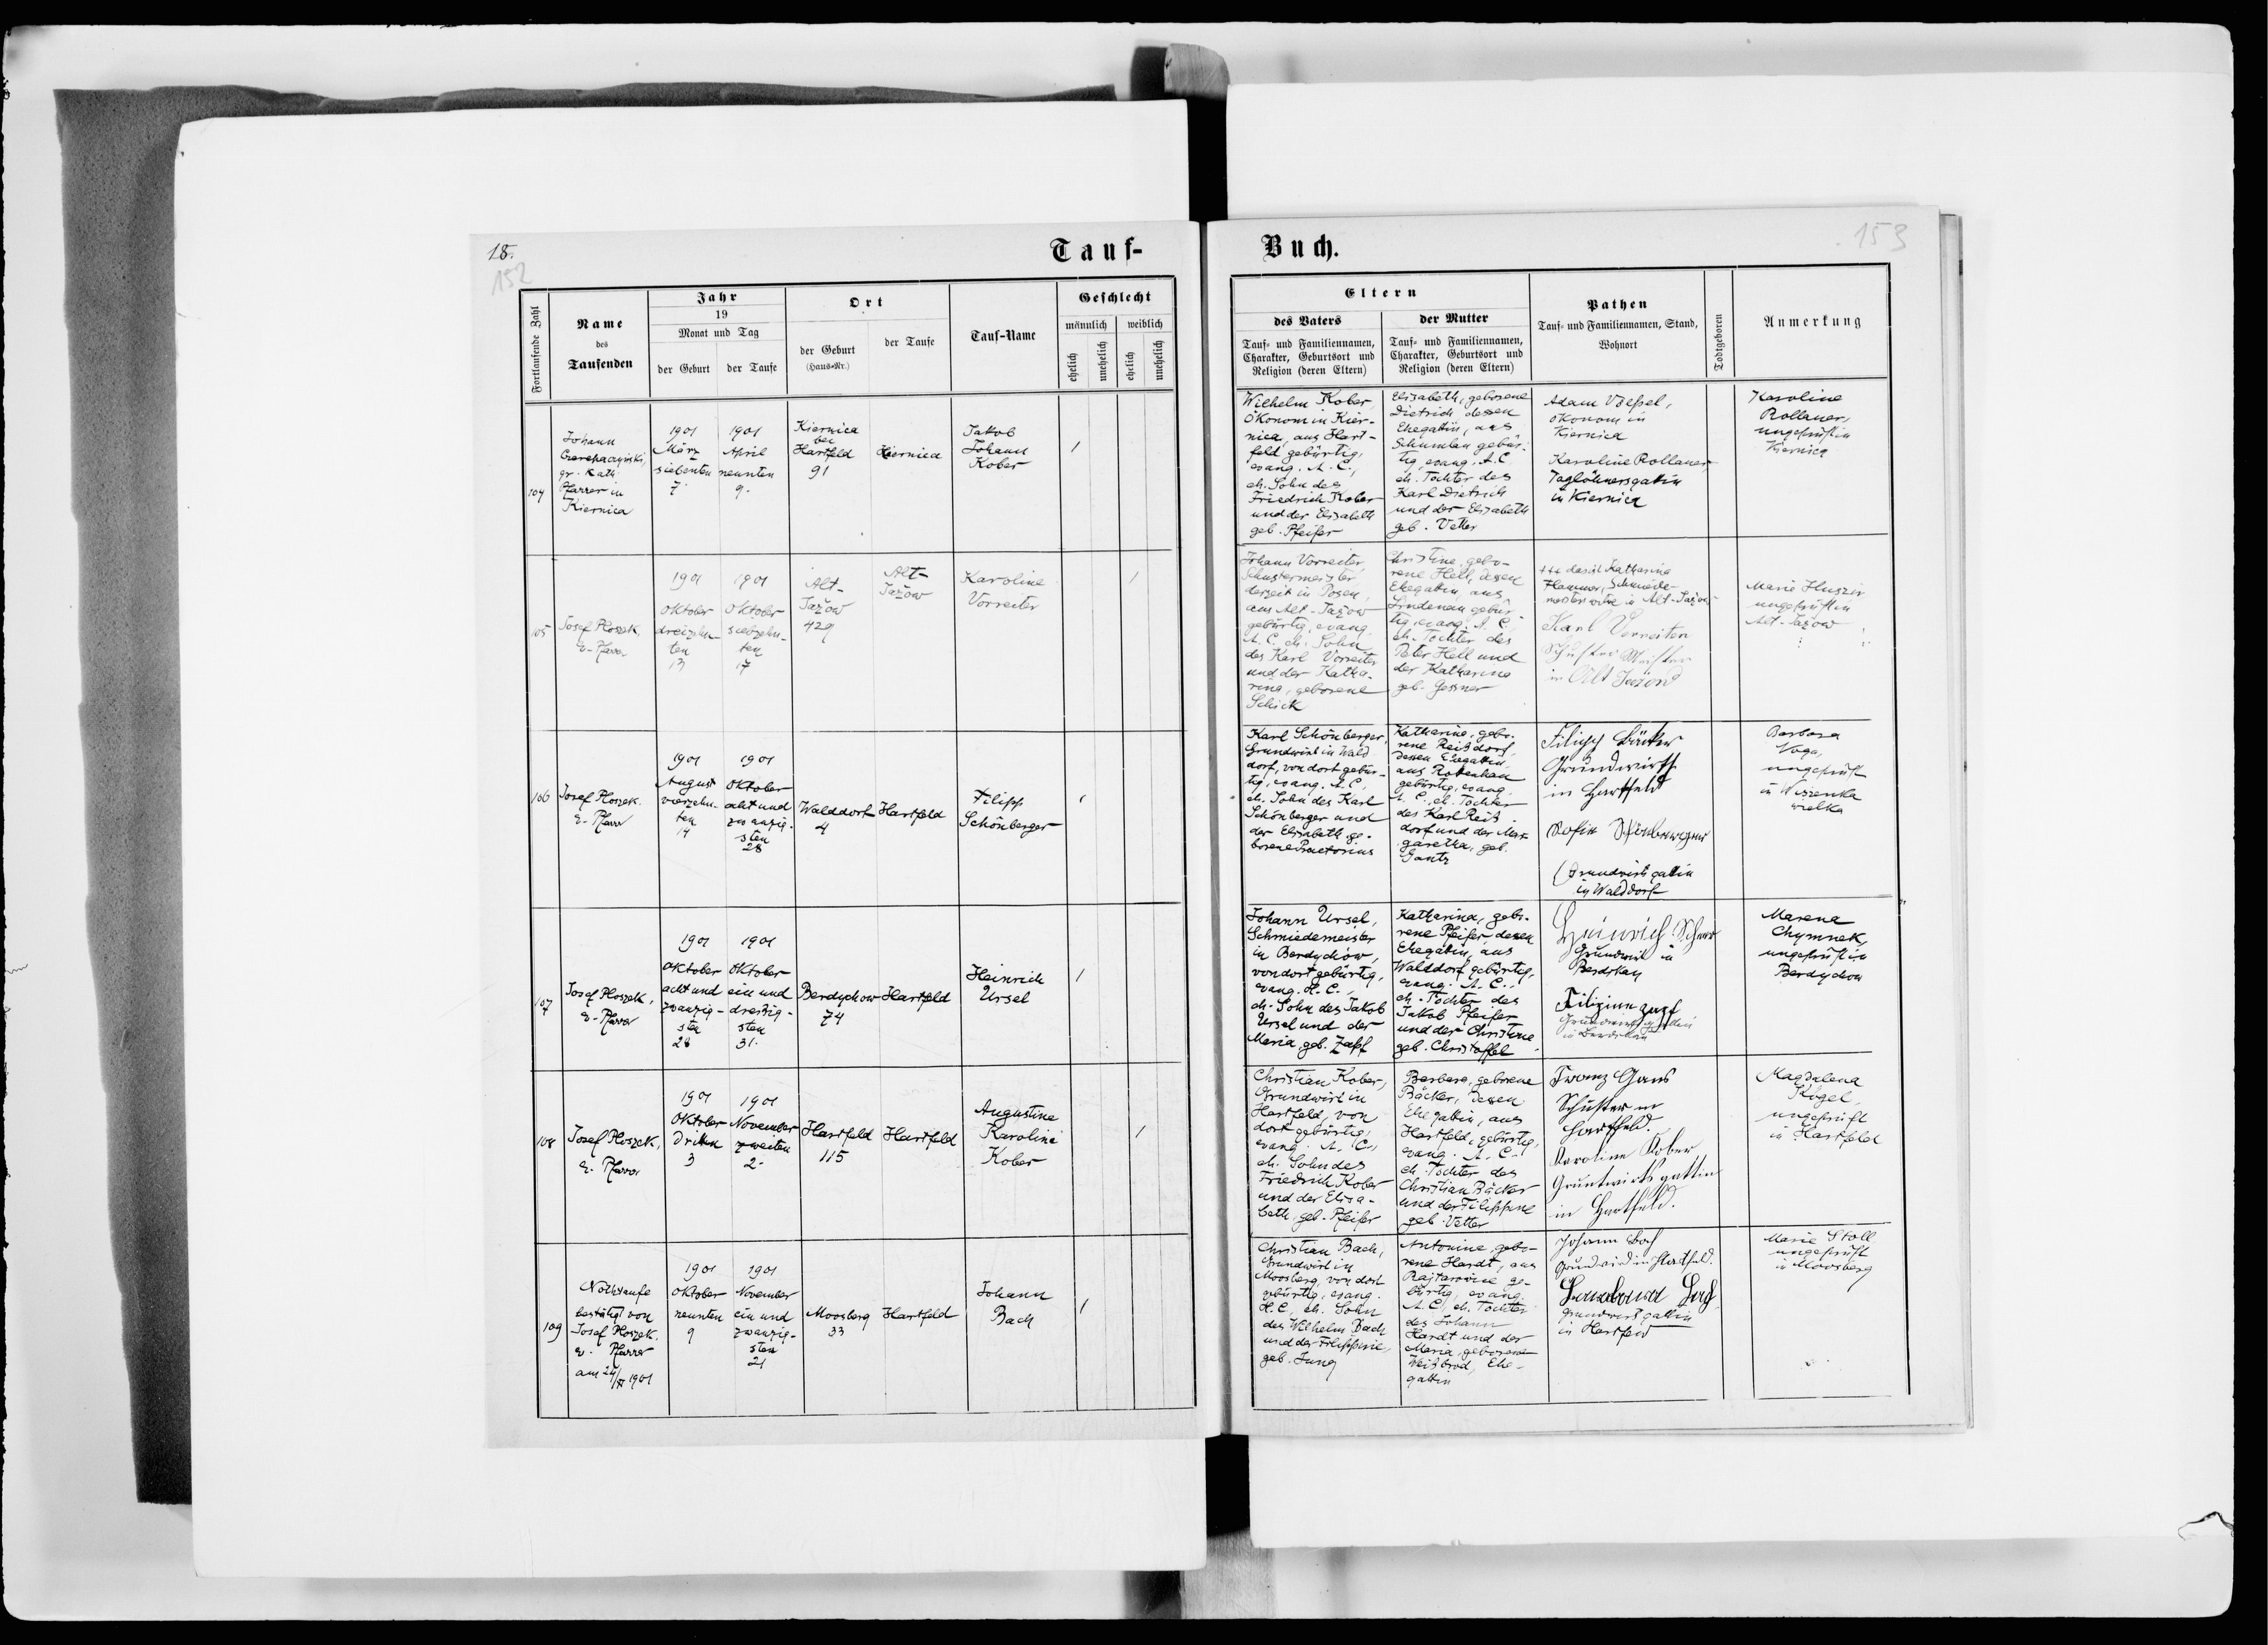 18.
152
Tauf-
Fortlaufende Zahl
Name
des
Taufenden
Jahr
19
Monat und Tag
der Geburt
der Taufe
Ort
der Geburt
(Haus-Nr.)
der Taufe
Tauf-Name
Geschlecht
männlich
weiblich
ehelich
unehelich
ehelich
unehelich
104
Johann
gr. Kath.
Pfarrer in
Kiernica
1901
März
siebenten
7.
1901
April
neunten
9.
Kiernica
bei
Hartfeld
91
Kiernica
Jakob
Johann
Kober
1
105
Josef Ploszek,
e. Pfarrer
1901
Oktober
dreizehn-
ten
13
1901
Oktober
siebzehn-
ten
17
Alt-
Jažow
429
Alt-
Jažow
Karoline
Vorreiter
1
106
Josef Ploszek.
e. Pfarrer
1901
August
vierzehn-
ten
14
1901
Oktober
acht und
zwanzig-
sten
28
Walddorf
4
Hartfeld
Filipp
Schönberger
1
107
Josef Ploszek,
e. Pfarrer
1901
Oktober
acht und
zwanzig-
sten
28
1901
Oktober
ein und
dreißig-
sten
31.
Berdychow
74
Hartfeld
Heinrich
Ursel
1
108
Josef Ploszek,
e. Pfarrer
1901
Oktober
dritten
3
1901
November
zweiten
2.
Hartfeld
115
Hartfeld
Augustine
Karoline
Kober
1
109
Nothtaufe
bestätigt von
Josef Ploszek.
e. Pfarrer
1901
Oktober
neunten
9
1901
November
ein und
zwanzig-
sten
21
Moosberg
33
Hartfeld
Johann
Bach
1
Buch.
153
Eltern
des Vaters
Tauf- und Familiennamen,
Charakter, Geburtsort und
Religion (deren Eltern)
der Mutter
Tauf- und Familiennamen,
Charakter, Geburtsort und
Religion (deren Eltern)
Pathen
Tauf- und Familiennamen, Stand,
Wohnort
Todtgeboren
Anmerkung
Wilhelm Kober,
Ökonom in Kier-
nica, aus Hart-
feld gebürtig,
evang. A. C.,
eh. Sohn des
Friedrich Kober
und der Elisabeth
geb. Pfeifer
Elisabeth, geborene
Dietrich, dessen
Ehegattin, aus
Schumlau gebür-
tig, evang. A. C
eh. Tochter des
Karl Dietrich
und der Elisabeth
geb. Vetter
Adam
Ökonom in
Kiernica
Karoline Rollauer
Taglöhnersgattin
in Kiernica
Karoline
Rollauer,
ungeprüft in
Kiernica
Johann Vorreiter,
Schustermeister
derzeit in Posen,
aus Alt-Jažow
gebürtig, evang.
A. C. eh. Sohn
des Karl Vorreiter
und der Katha-
rina, geborene
Schick
Christine, gebo-
rene Hell, dessen
Ehegattin, aus
Lindenau gebür-
tig, evang. A. C.
eh. Tochter des
Peter Hell und
der Katharina
geb. Gessner
+++ Katharina
in Alt-Jažow
Karl Vorreiter
Schuster Meister
in Alt Jažow
Marie Huszir
ungeprüft in
Alt-Jažow
Karl Schönberger,
Grundwirt in Wald
dorf, von dort gebür-
tig, evang. A. C,
eh. Sohn des Karl
Schönberger und
der Elisabeth ge-
borene Praetorius
Katharina, gebo-
rene Reißdorf,
dessen Ehegattin,
aus Rottenhan
gebürtig, evang.
A. C., eh. Tochter
des Karl Reiß-
dorf und der Mar-
garetha, geb.
Gantz
Filipp Bäcker
Grundwirth
in Hartfeld
Sofie
Grundwirtsgattin
in Walddorf
Barbara
Voga,
ungeprüft
in Wiszenka
wielka
Johann Ursel,
Schmiedemeister
in Berdychow,
von dort gebürtig,
evang. H. C.,
eh. Sohn des Jakob
Ursel und der
Maria, geb. Zapf
Katharina, gebo-
rene Pfeifer, dessen
Ehegattin, aus
Walddorf gebürtig,
evang. A. C.,
eh. Tochter des
Jakob Pfeifer
und der Christine
geb. Christoffel
Heinrich
Grundwirt in
Filipine Zapf
Marena
Chymnek,
ungeprüft in
Berdychow
Christian Kober,
Grundwirt in
Hartfeld, von
dort gebürtig,
evang. A. C.,
eh. Sohn des
Friedrich Kober
und der Elisa-
beth, geb. Pfeifer
Barbara, geborene
Bäcker, dessen
Ehegattin, aus
Hartfeld, gebürtig,
evang. A. C.
eh. Tochter des
Christian Bäcker
und der Filippine
geb. Vetter
Franz Gans
Schuster in
Hartfeld.
Karoline Kober
Gruntwirtsgattin
in Hartfeld.
Magdalena
Kogel,
ungeprüft
in Hartfeld
Christian Bach,
Grundwirt in
Moosberg, von dort
gebürtig, evang.
H. C, eh. Sohn
des Wilhelm Bach
und der Filippine,
geb. Jung
Antonine, gebo-
rene Hardt, aus
ge-
bürtig, evang.
A. C., eh. Tochter
des Johann
Hardt und der
Maria, geborene
Weißbrod, Ehe-
gattin
Johann Bach
Grundwirt in Hartfeld.
Grundwirtsgattin
in Hartfeld
Marie Stoll
ungeprüft
in Moosberg